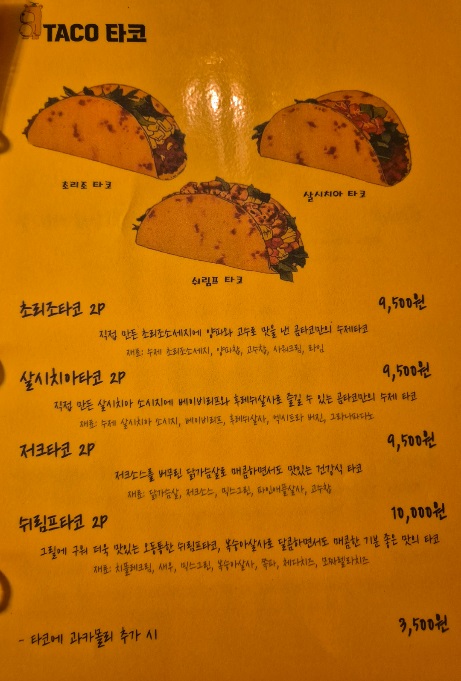 TACO 타코
초리조 타코
살시치아 타코
쉬림프 타코
초리조타코 2P 9,500원
직접 만든 초리조소세지에 양파와 고수로 맛을 낸! 곰타코만의 수제타코
재료: 수제 초리조소세지, 양파찹, 고수찹, 사워크림, 라임
살시치아타코 2P 9,500원
직접 만든 살시치아 소시지에 베이비리프와 후레쉬살사로 즐길 수 있는 곰타코만의 수제 타코
재료: 수제 살시치아 소시지, 베이비리프, 후레쉬살사, 엑시트라 버진, 그라나파다노
저크타코 2P 9,500원
저크소스를 버무린 닭가슴살로 매콤하면서도 맛있는 건강식 타코
재료: 닭가슴살, 저크소스, 믹스그린, 파인애플살사, 고수찹
쉬림프타코 2P 10,000원
그릴에 구워 더욱 맛있는 오동통한 쉬림프타코, 복숭아살사로 달콤하면서도 매콤한 기분 좋은 맛의 타코
재료: 치폴레크림, 새우, 믹스그린, 복숭아살사, 쪽파, 체다치즈, 모짜렐라치즈
- 타코에 과카몰리 추가 시 3,500원